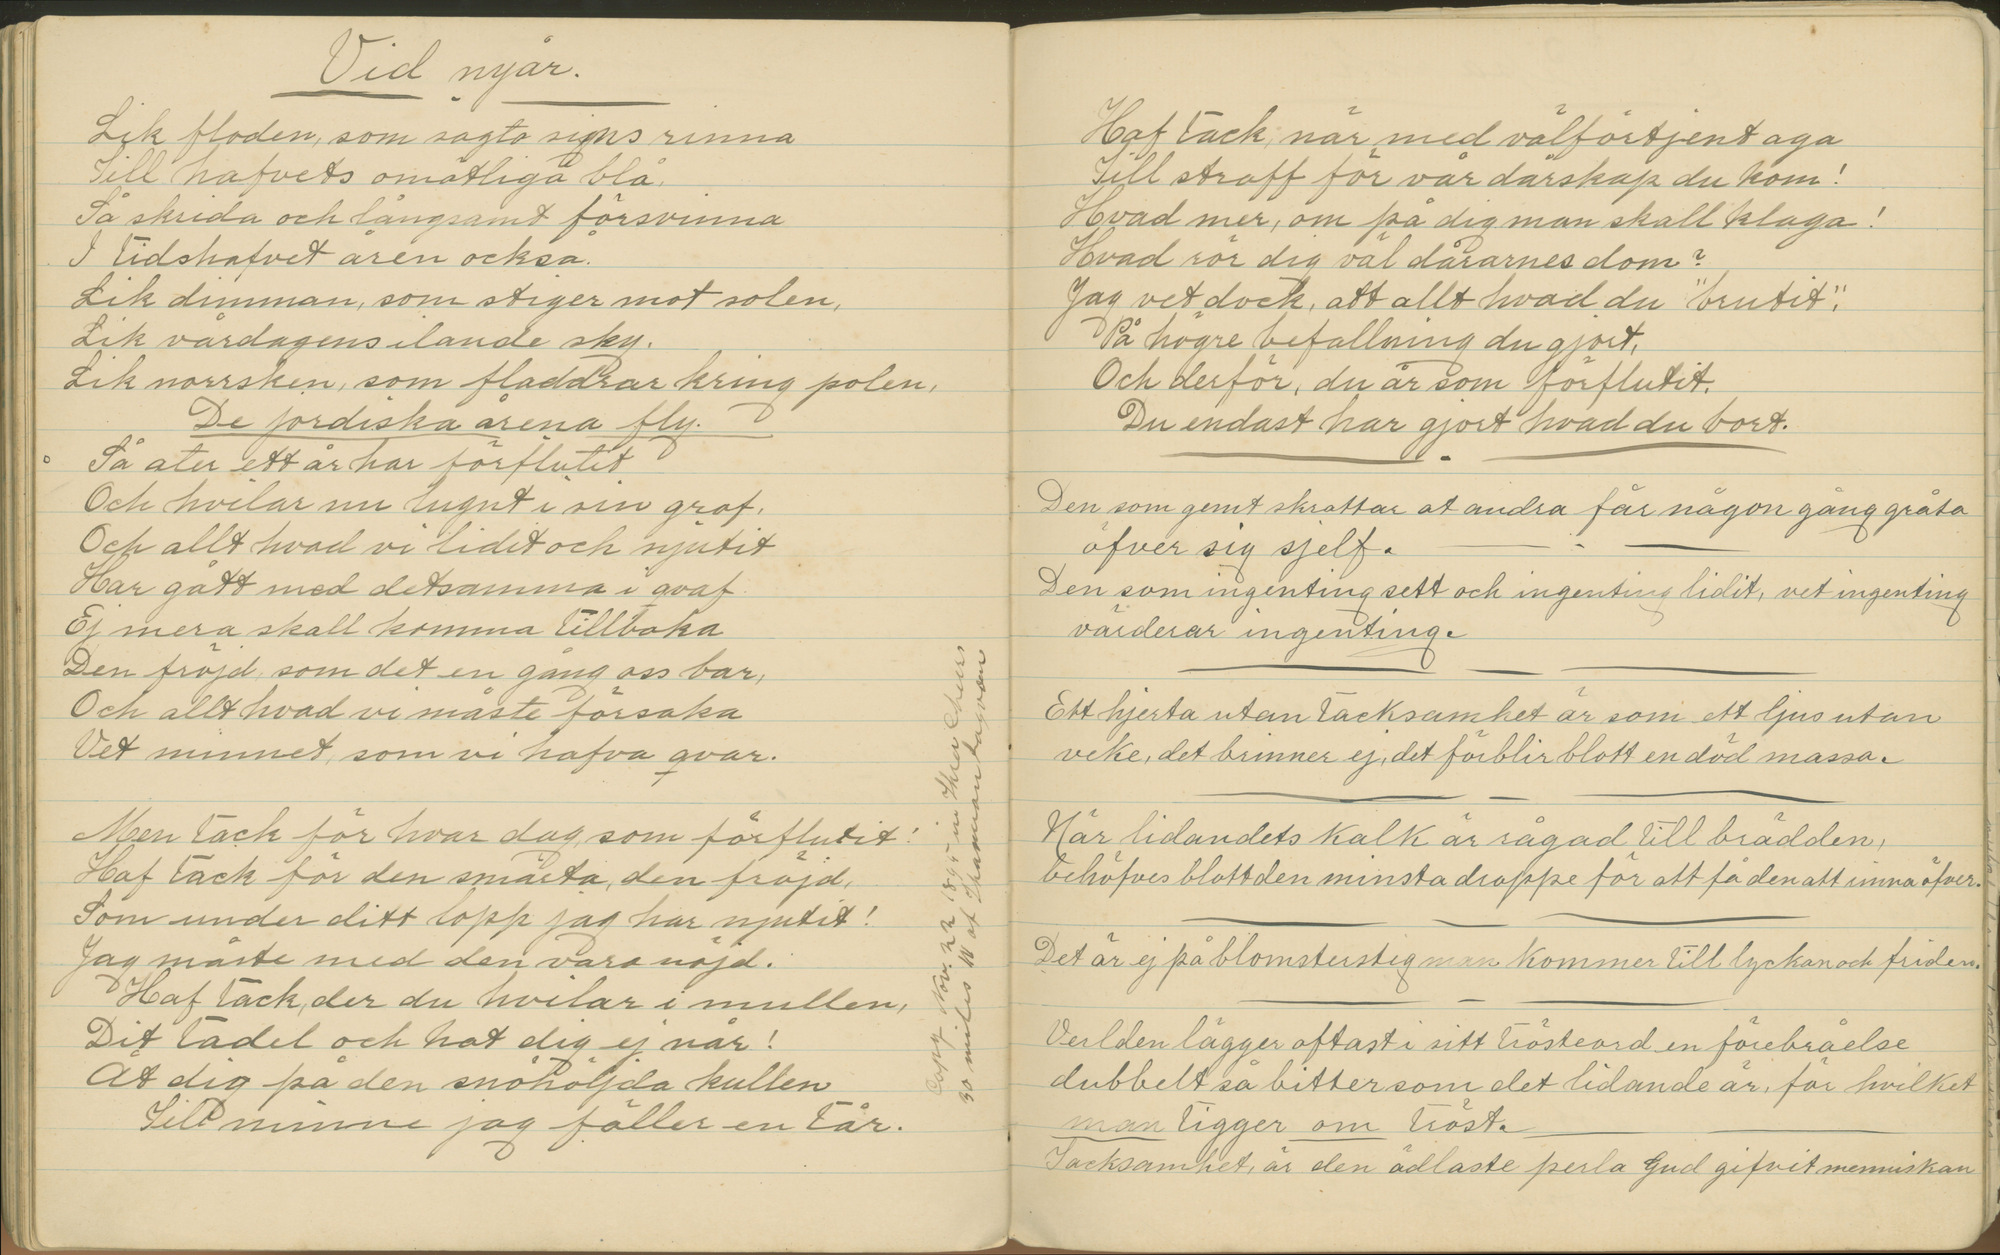 Vid nyår.
Lik floden, som sagta synes rinna
Till hafvets omätliga blå,
Så skrida och långsamt försvinna
I tidshafvet åren också.
Lik dimman, som stiger mot solen,
Lik vårdagens ilande sky.
Lik norrsken, som fladdrar kring polen,
De jordiska årena fly.
Så åter ett år har förflutit
Och hvilar nu lugnt i sin graf,
Och allt hvad vi lidit och njutit
Har gått med detsamma i qvaf
Ej mera skall komma tillbaka
Den fröjd, som det en gång oss bar,
Och allt hvad vi måste försaka
Vet minnet, som vi hafva qvar.
Men tack för hvar dag, som förflutit!
Haf tack för den smärta, den fröjd,
Som under ditt lopp jag har njutit!
Jag måste med den vara nöjd.
Haf tack, der du hvilar i mullen,
Dit tadel och hat dig ej når!
Åt dig på den snöhöljda kullen
Till minne jag fäller en tår.
Nov. 22 1895 in Three Cheers
30 miles W of
Haf tack, när med välförtjent aga
Till straff för vår dårskap du kom!
Hvad mer, om på dig man skall klaga!
Hvad rör dig väl dårarnes dom?
Jag vet dock, att allt hvad du "brutit",
På högre befallning du gjort,
Och derför, du år som förflutit,
Du endast har gjort hvad du bort.
Den som gemt skrattar at andra får någon gång gråta
öfver sig sjelf.
Den som ingenting sett och ingenting lidit, vet ingenting
värderar ingenting.
Ett hjerta utan tacksamhet är som ett ljus utan
veke, det brinner ej, det förblir blott en död massa.
När lidandets kalk är rågad till brädden,
behöfves blott den minsta droppe för att få den att rinna öfver.
Det är ej på blomsterstig man kommer till lyckan och friden.
Verlden lägger oftast i sitt trösteord en förebråelse
dubbelt så bitter som det lidande är, för hvilket
man tigger om tröst.
Tacksamhet, är den ädlaste perla Gud gifvit menniskan